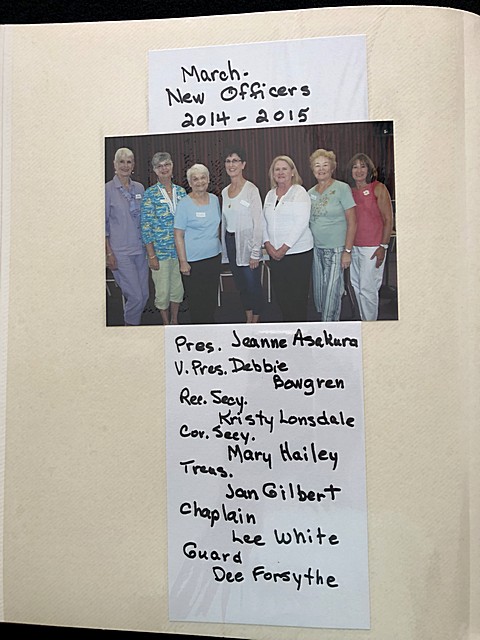 March.
New Officers
2014 - 2015
Pres. Jeanne Asakura
V. Pres. Debbie
Bowgren
Rec. Secy.
Kristy Lonsdale
Cor. Secy.
Mary Hailey
Treas.
Jan Gilbert
Chaplain
Lee White
Guard
Dee Forsythe